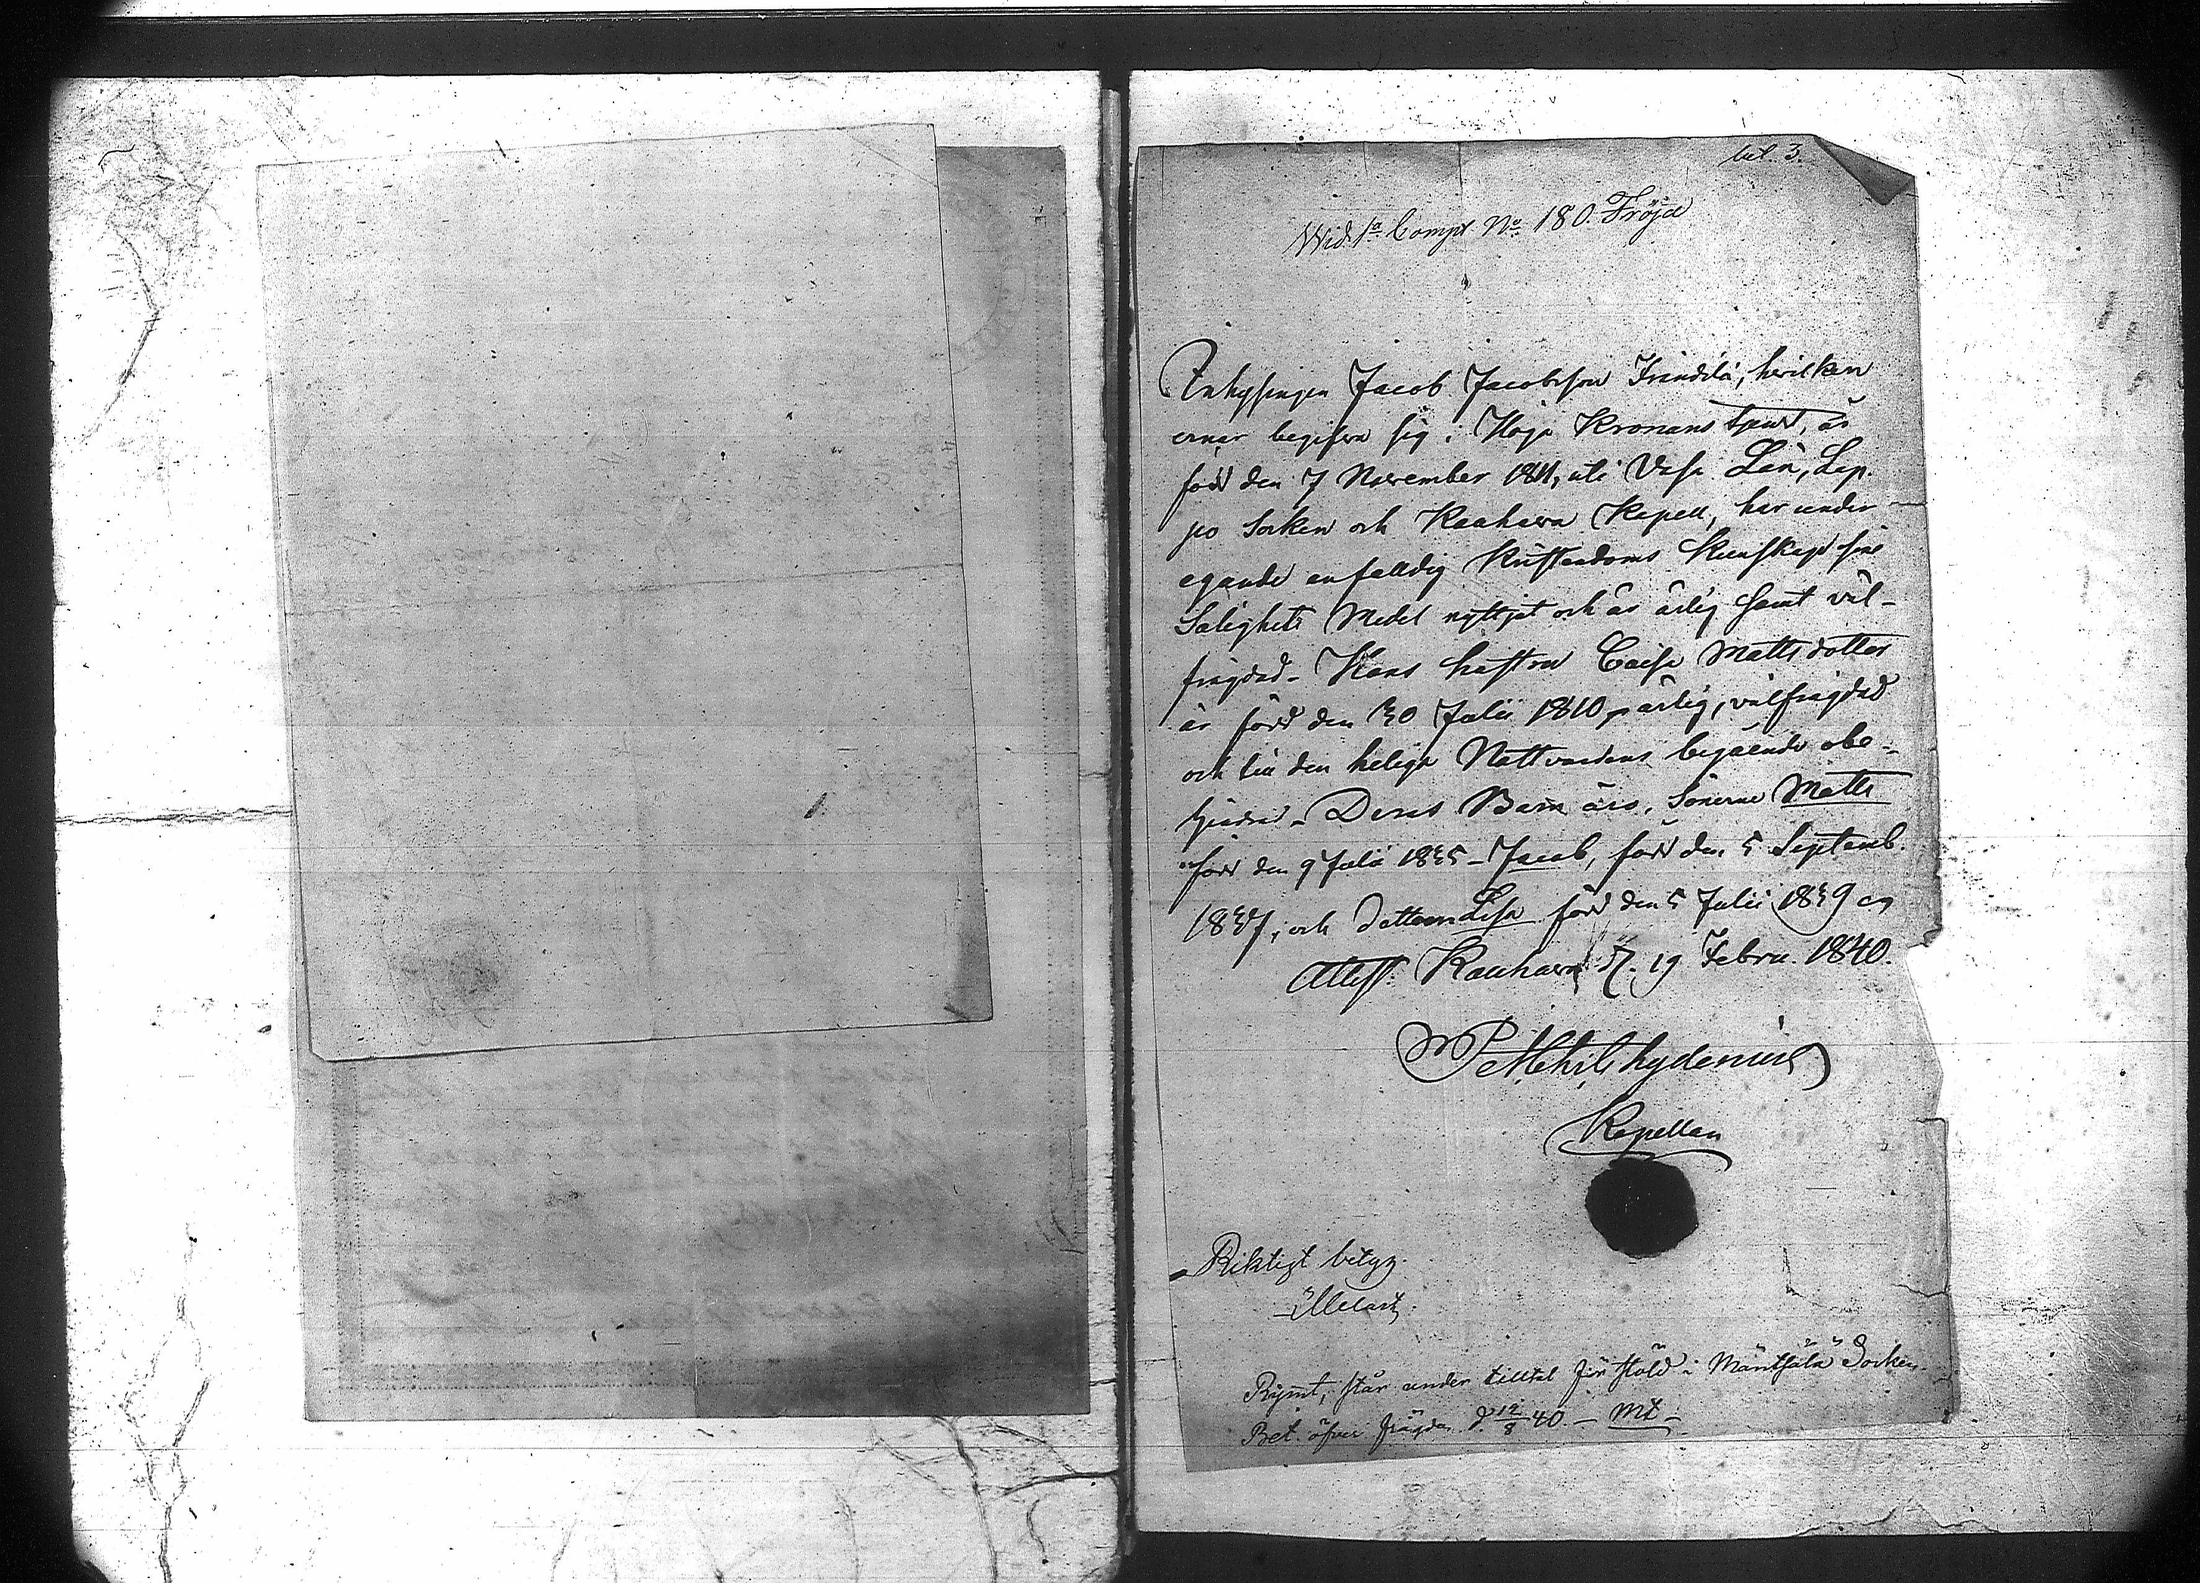 bet. 3.
Wid 1a Comp: No 180. Fröjd
Inhysingen Jacob Jacobsson, hvilken
ernar begifva sig i Höga Kronans tjenst, är
född den 7 November 1811, uti Vasa Län, Lap-
po Socken och Kauhava Kapell, har under
egande enfalldig Kristendoms Kunskap sine
Salighets Medel nyttjat och är ärlig samt väl-
frägdad - Hans hustru Caisa Mattsdotter
är född den 30 Julii 1810, ärlig, välfrägdad
och till den heliga Nattvardens begående obe-
hindrad - Deras Barn äro, Sönerne Matts
född den 9 Julii 1835 - Jacob, född den 5 Septemb.
1837, och dottern Lisa född den 5 Julii 1839
Attest. Kauhava d. 19 Febru. 1840.
Kapellan
Riktigt betyg.
Rymt, står under tilltal för stöld i Mäntsälä Socken.
Bet. öfver frägden d. 12/8 40 -